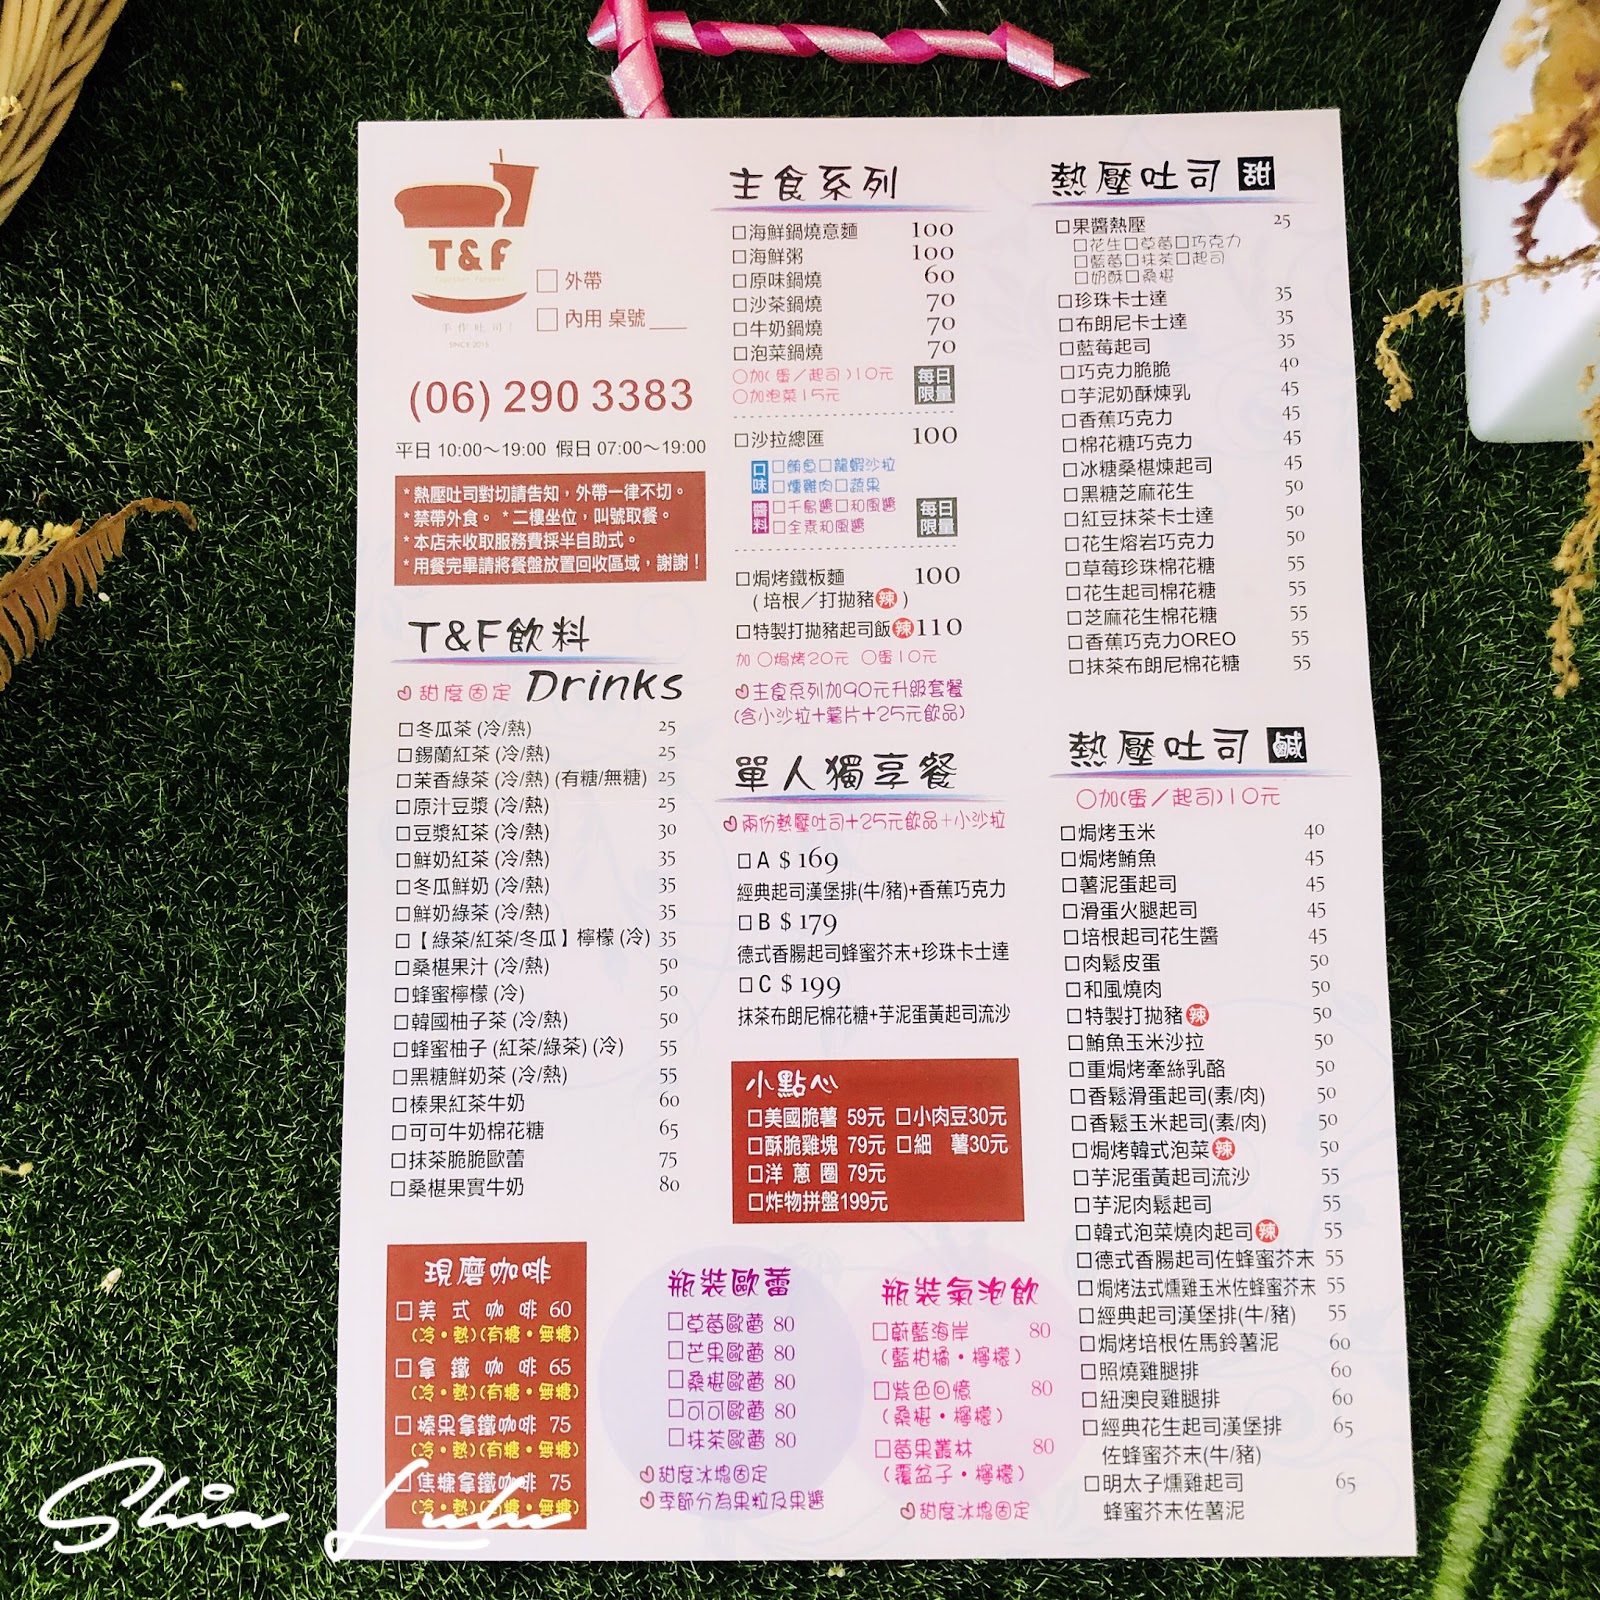 T&F
Together Forever
手作吐司
SINCE·2015
□ 外帶
□ 內用 桌號____
(06) 290 3383
平日 10:00～19:00 假日 07:00～19:00
*熱壓吐司對切請告知，外帶一律不切。
*禁帶外食。 *二樓坐位，叫號取餐。
*本店未收取服務費採半自助式。
*用餐完畢請將餐盤放置回收區域，謝謝！
T&F飲料
甜度固定 Drinks
□冬瓜茶 (冷/熱) 25
□錫蘭紅茶 (冷/熱) 25
□茉香綠茶 (冷/熱) (有糖/無糖) 25
□原汁豆漿 (冷/熱) 25
□豆漿紅茶 (冷/熱) 30
□鮮奶紅茶 (冷/熱) 35
□冬瓜鮮奶 (冷/熱) 35
□鮮奶綠茶 (冷/熱) 35
□【綠茶/紅茶/冬瓜】檸檬 (冷) 35
□桑椹果汁 (冷/熱) 50
□蜂蜜檸檬 (冷) 50
□韓國柚子茶 (冷/熱) 50
□蜂蜜柚子 (紅茶/綠茶) (冷) 55
□黑糖鮮奶茶 (冷/熱) 55
□榛果紅茶牛奶 60
□可可牛奶棉花糖 65
□抹茶脆脆歐蕾 75
□桑椹果實牛奶 80
現磨咖啡
□美式咖啡 60
(冷・熱)(有糖・無糖)
□拿鐵咖啡 65
(冷・熱)(有糖・無糖)
□榛果拿鐵咖啡 75
(冷・熱)(有糖・無糖)
□焦糖拿鐵咖啡 75
(冷・熱)(有糖・無糖)
主食系列
□海鮮鍋燒意麵 100
□海鮮粥 100
□原味鍋燒 60
□沙茶鍋燒 70
□牛奶鍋燒 70
□泡菜鍋燒 70
○加(蛋／起司)10元
○加泡菜15元
每日限量
□沙拉總匯 100
口味 □鮪魚□龍蝦沙拉
□燻雞肉□蔬果
醬料 □千島醬□和風醬
□全素和風醬
每日限量
□焗烤鐵板麵 100
(培根／打拋豬辣)
□特製打拋豬起司飯辣110
加 ○焗烤20元 ○蛋10元
主食系列加90元升級套餐
(含小沙拉+薯片+25元飲品)
單人獨享餐
兩份熱壓吐司+25元飲品+小沙拉
□A $169
經典起司漢堡排(牛/豬)+香蕉巧克力
□B $179
德式香腸起司蜂蜜芥末+珍珠卡士達
□C $199
抹茶布朗尼棉花糖+芋泥蛋黃起司流沙
小點心
□美國脆薯 59元 □小肉豆30元
□酥脆雞塊 79元 □細 薯30元
□洋蔥圈 79元
□炸物拼盤199元
瓶裝歐蕾
□草莓歐蕾 80
□芒果歐蕾 80
□桑椹歐蕾 80
□可可歐蕾 80
□抹茶歐蕾 80
甜度冰塊固定
季節分為果粒及果醬
瓶裝氣泡飲
□蔚藍海岸 80
(藍柑橘・檸檬)
□紫色回憶 80
(桑椹・檸檬)
□莓果叢林 80
(覆盆子・檸檬)
甜度冰塊固定
熱壓吐司 甜
□果醬熱壓 25
□花生□草莓□巧克力
□藍莓□抹茶□起司
□奶酥□桑椹
□珍珠卡士達 35
□布朗尼卡士達 35
□藍莓起司 35
□巧克力脆脆 40
□芋泥奶酥煉乳 45
□香蕉巧克力 45
□棉花糖巧克力 45
□冰糖桑椹煉起司 45
□黑糖芝麻花生 50
□紅豆抹茶卡士達 50
□花生熔岩巧克力 50
□草莓珍珠棉花糖 55
□花生起司棉花糖 55
□芝麻花生棉花糖 55
□香蕉巧克力OREO 55
□抹茶布朗尼棉花糖 55
熱壓吐司 鹹
○加(蛋／起司)10元
□焗烤玉米 40
□焗烤鮪魚 45
□薯泥蛋起司 45
□滑蛋火腿起司 45
□培根起司花生醬 45
□肉鬆皮蛋 50
□和風燒肉 50
□特製打拋豬辣 50
□鮪魚玉米沙拉 50
□重焗烤牽絲乳酪 50
□香鬆滑蛋起司(素/肉) 50
□香鬆玉米起司(素/肉) 50
□焗烤韓式泡菜辣 50
□芋泥蛋黃起司流沙 55
□芋泥肉鬆起司 55
□韓式泡菜燒肉起司辣 55
□德式香腸起司佐蜂蜜芥末 55
□焗烤法式燻雞玉米佐蜂蜜芥末 55
□經典起司漢堡排(牛/豬) 55
□焗烤培根佐馬鈴薯泥 60
□照燒雞腿排 60
□紐澳良雞腿排 60
□經典花生起司漢堡排 65
佐蜂蜜芥末(牛/豬)
□明太子燻雞起司 65
蜂蜜芥末佐薯泥
Shia Lulu